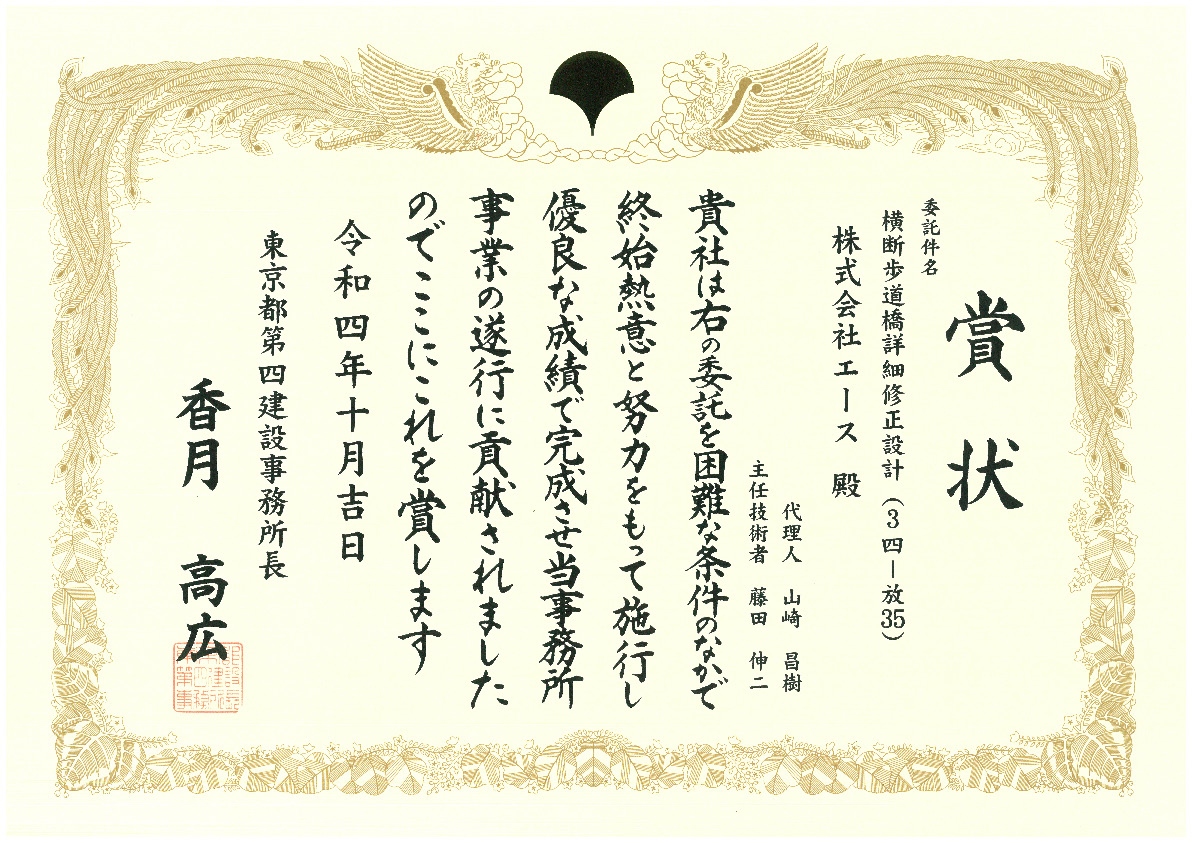 賞状
委託件名
横断歩道橋詳細修正設計（3四－放35）
株式会社エース 殿
代理人 山崎 昌樹
主任技術者 藤田 伸二
貴社は右の委託を困難な条件のなかで
終始熱意と努力をもって施行し
優良な成績で完成させ当事務所
事業の遂行に貢献されました
のでここにこれを賞します
令和四年十月吉日
東京都第四建設事務所長
香月 高広